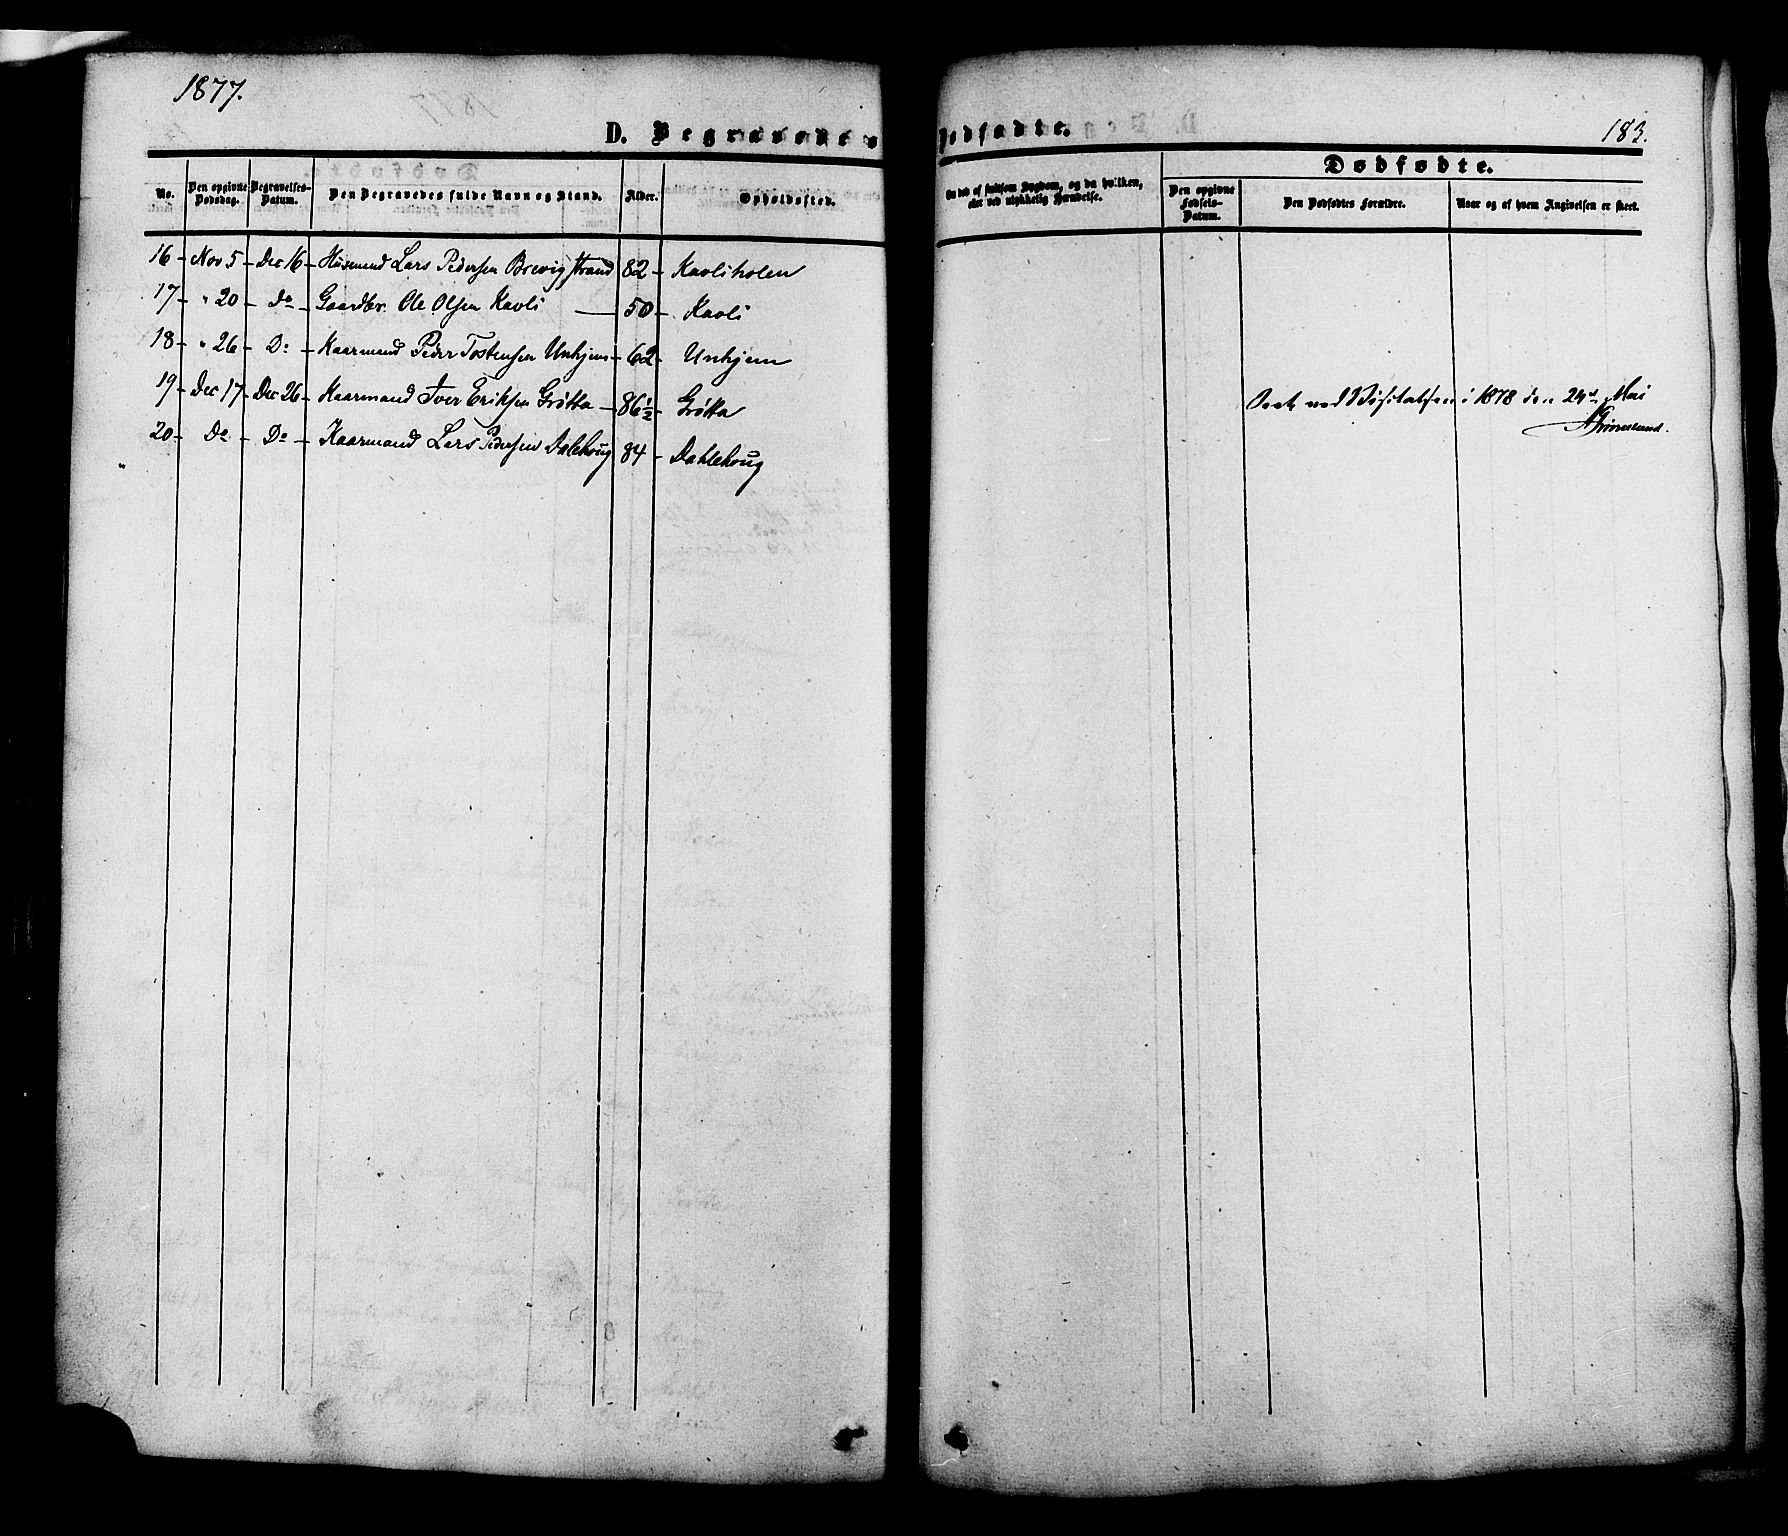 1877.
183.
D. Begravede og Dødfødte.
Dødfødte.
No.
Den opgivne Dødsdag.
Begravelses-Datum.
Den Begravedes fulde Navn og Stand.
Alder.
Opholdssted.
Om død af smitsom Sygdom, og da hvilken,
eller ved ulykkelig Hændelse.
Den opgivne Fødsels-Datum.
Den Dødfødtes Forældre.
Naar og af hvem Angivelsen er skeet.
16 - Nov 5 - Dec 16 - Husmand Lars Pedersen Brevigstrand 82 - Kavliholen
17 - " 20 - Do - Gaardbr. Ole Olsen Kavli — 50 - Kavli
18 - " 26 - Do - Kaarmand Peder Tostensen Unhjem - 62 - Unhjem
19 - Dec 17 - Dec 26 - Kaarmand Iver Eriksen Grøtta - 86 1/2 - Grøtta
20 - Do - Do - Kaarmand Lars Pedersen Dalehoug 84 - Dahlehoug
Seet ved Visitatsen i 1878 den 24de Mai
Grimelund.